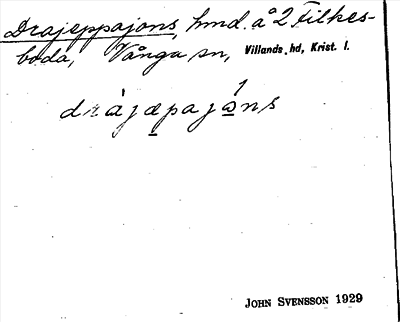 Drajeppajons, hmd. å 2 Filkes-
boda, Vånga sn, Villands hd, Krist. l.
dràjæpajǻns
JOHN SVENSSON 1929